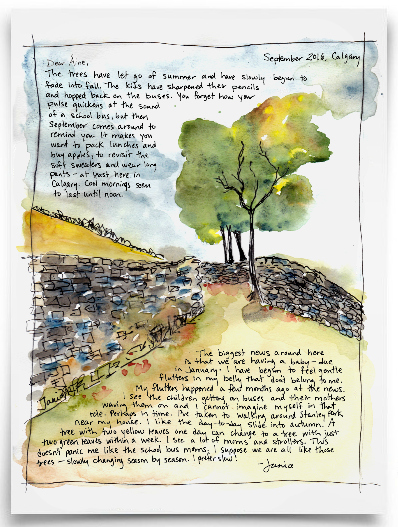 Dear Áine,
September 2016, Calgary
The trees have let go of summer and have slowly begun to
fade into fall. The kids have sharpened their pencils
and hopped back on the buses. You forget how your
pulse quickens at the sound
of a school bus, but then
September comes around to
remind you. It makes you
want to pack lunches and
buy apples, to revisit the
soft sweaters and wear long
pants - at least here in
Calgary. Cool mornings seem
to last until noon.
The biggest news around here
is that we are having a baby - due
in January. I have begun to feel gentle
flutters in my belly that don't belong to me.
My flutters happened a few months ago at the news.
I see the children getting on buses and their mothers
waving them on and I cannot imagine myself in that
role. Perhaps in time. I've taken to walking around Stanley Park
near my house. I like the day-to-day slide into autumn. A
tree with two yellow leaves one day can change to a tree with just
two green leaves within a week. I see a lot of moms and strollers. This
doesn't panic me like the school bus moms. I suppose we are all like those
trees - slowly changing season by season. I prefer slow!